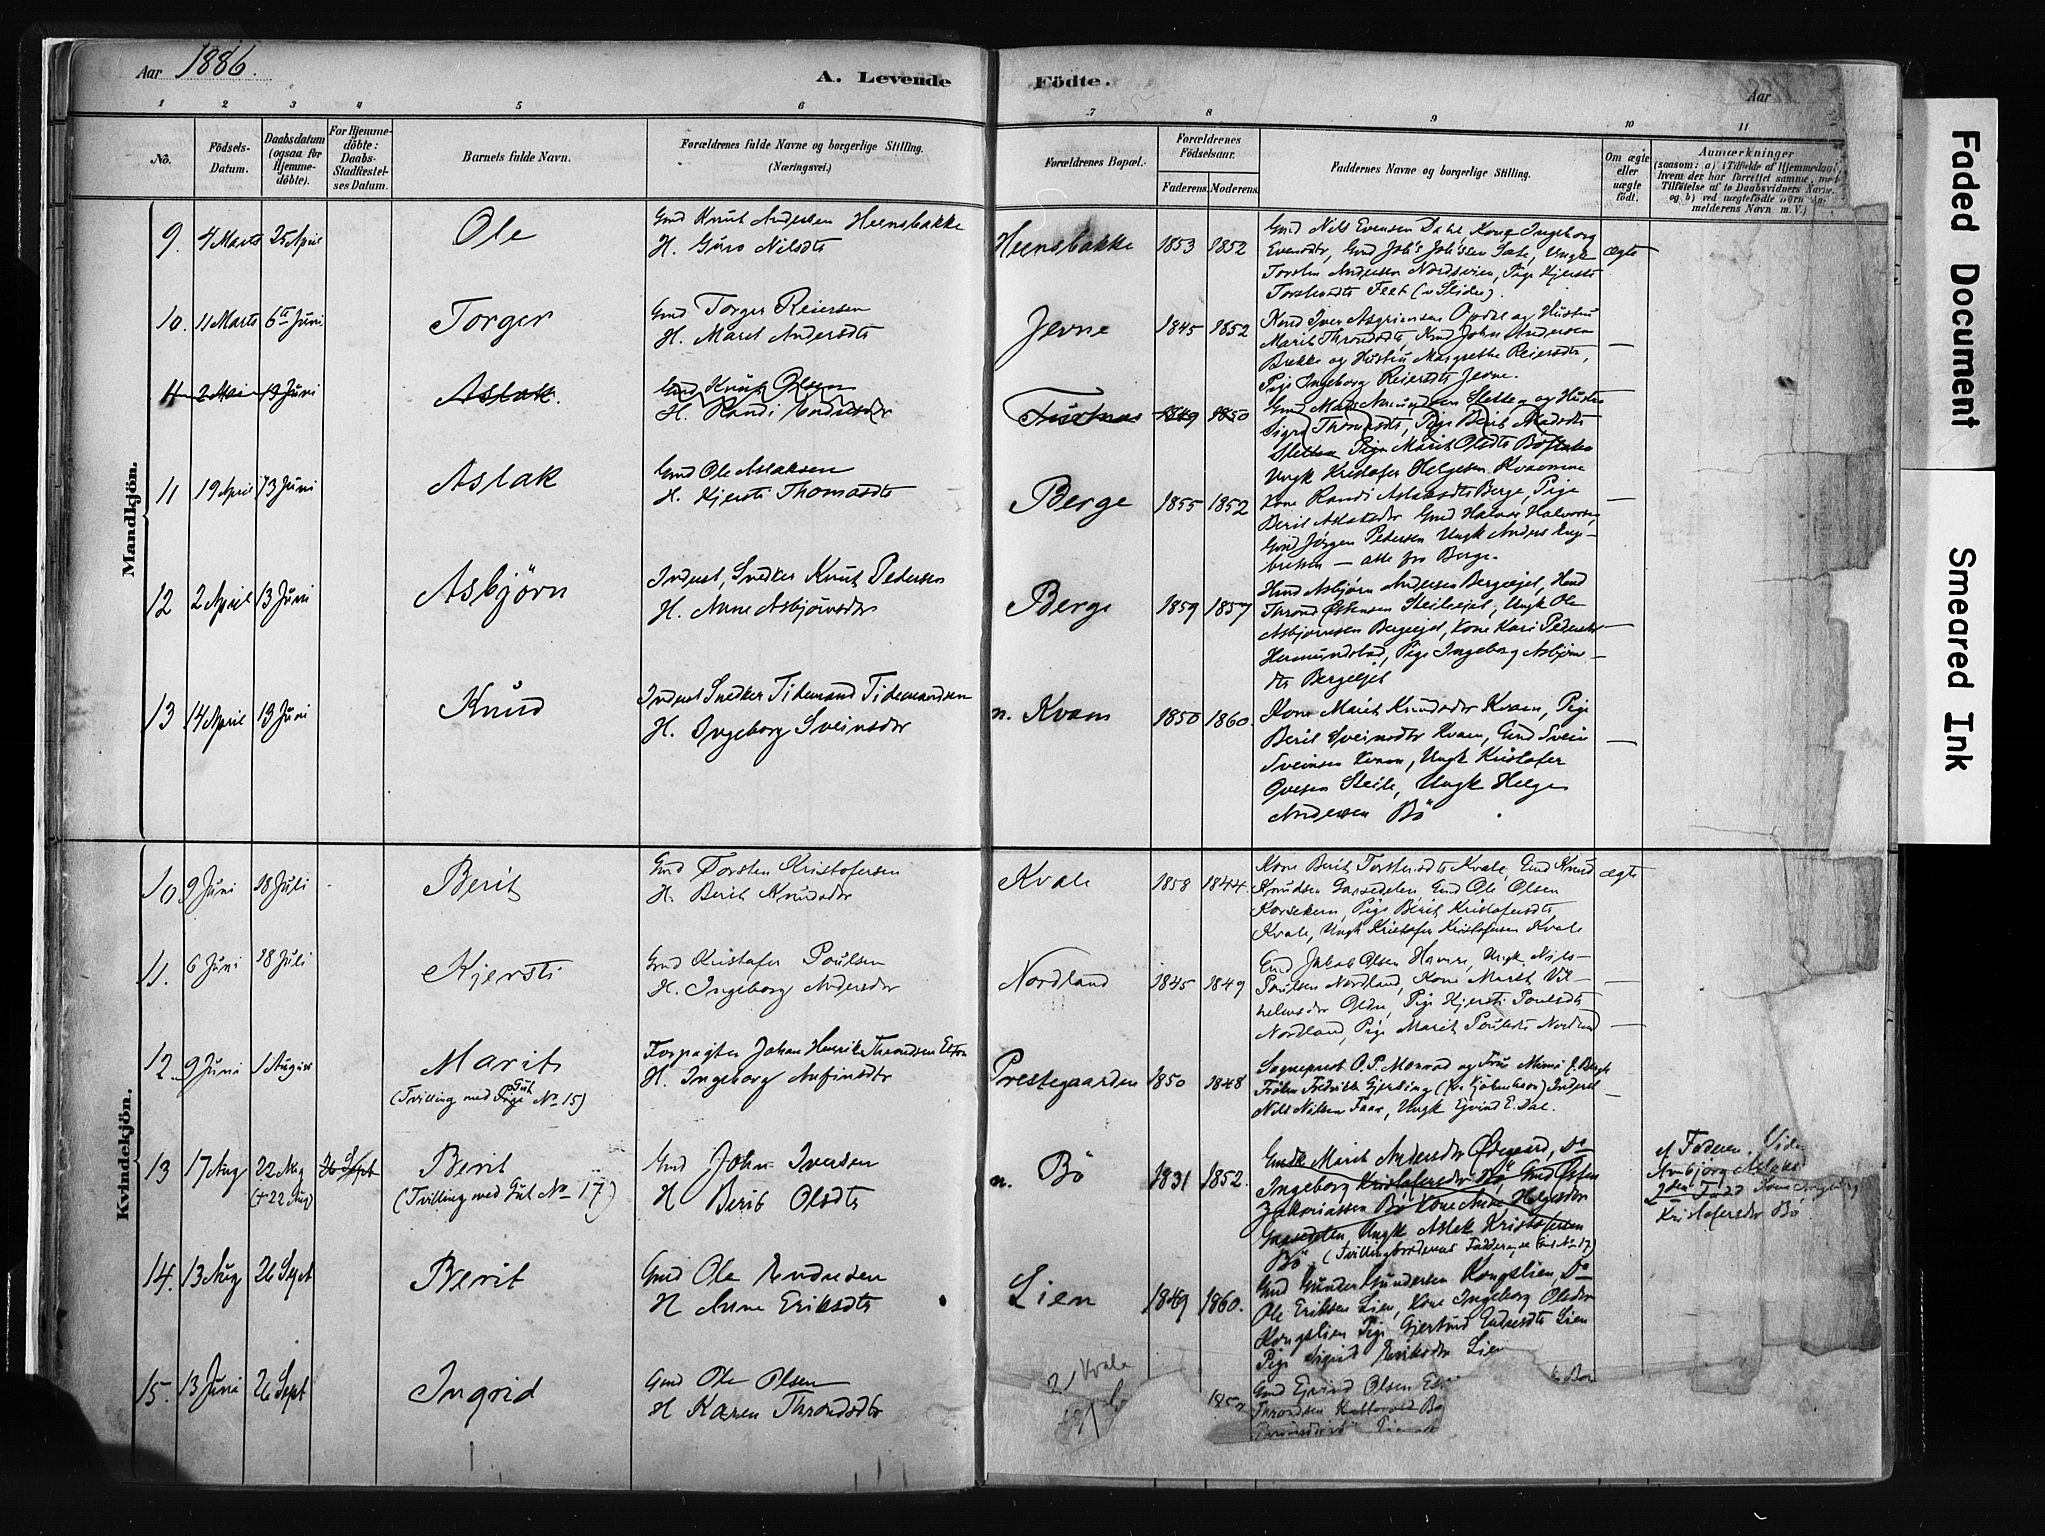 Aar 1886.
A. Levende Födte.
Aar
1 2 3 4 5 6 7 8 9 10 11
No.
Födsels-Datum.
Daabsdatum (ogsaa for Hjemme-döbte).
For Hjemme-döbte: Daabs-Stadfæstel-ses Datum.
Barnets fulde Navn.
Forældrenes fulde Navne og borgerlige Stilling. (Næringsvei.)
Forældrenes Bopæl.
Forældrenes Födselsaar.
Faderens. Moderens.
Faddernes Navne og borgerlige Stilling.
Om ægte eller uægte födt.
Anmærkninger
(saasom: a) i Tilfælde af Hjemmedaab,
hvem der har forrettet samme, med
Tilföielse af to Daabsvidners Navne.
og b) ved uægtefödte Börn An-
melderens Navn m.V.)
Mandkjön.
9. 4 Marts 25 April Ole
Gmd Knut Andersen Heensbakke
H. Guro Nilsdtr
Heensbakke 1853 1852
Gmd Nils Evensen Dahl Kone Ingeborg
Evensdtr, Gmd Joh's Joh'ssen Sæte, Ungk
Torsten Andersen Nordsveen, Pige Kjersti
Torstensdtr Feet (v Slidre).
ægte
10. 11 Marts 6te Juni Torger
Gmd Torger Reiersen
H. Marit Andersdtr
Jevne 1845 1852
Iver Asgrimsen Opdal og Hustru
Marit Throndsdtr, John Andersen
Bække og Hustru Margrethe Reiersdtr,
Pige Ingeborg Reiersdtr Jevne.
—
11 2 Mai 13 Juni Aslak.
Gmd Knut Olsen
H. Randi Endresdtr
1849 1850
Gmd Mads Sletten og Hustru
Sigrid Throndsdtr, Pige Berit Madsdtr
Sletten Pige Marit Olsdtr
11 19 April 13 Juni Aslak
Gmd Ole Aslaksen
H. Kjersti Thomasdtr
Berge 1855 1852
Ungk Kristofer Helgesen Kvamme
Kone Randi Aslaksdtr Berge, Pige
Berit Aslaksdtr Gmd Halvor Halvorsen,
Gmd Jørgen Pedersen Ungk Anders Enge-
bretsen — alle fra Berge.
—
12 2 April 13 Juni Asbjörn
Inderst, Snedker Knut Pedersen
H. Anne Asbjörnsdtr
Berge 1859 1857
Hmd Asbjörn Andersen Bergeejet, Hmd
Thrond Østensen Steileejet, Ungk Ole
Asbjörnsen Bergeejet, Kone Kari Pedersdtr
Hermundstad, Pige Ingeborg Asbjörns-
dtr Bergeejet
—
13 14 April 13 Juni Knud
Inderst Snedker Tidemand Tidemandsen
H. Ingeborg Sveinsdtr
n. Kvam 1850 1860
Kone Marit Knudsdtr Kvam, Pige
Berit Sveinsdtr Kvam, Gmd Svein
Sveinsen Kvam, Ungk Kristofer
Ovesen Steile, Ungk Helge
Andersen Bö
—
Kvindekjön.
10 9 Juni 18 Juli Berit
Gmd Torsten Kristofersen
H. Berit Knudsdtr
Kvale 1858 1844
Kone Berit Torstensdtr Kvale, Gmd Knud
Knudsen Gaasedelen Gmd Ole Olsen
Korsekern, Pige Berit Kristofersdtr
Kvale, Ungk Kristofer Kristofersen Kvale
ægte
11. 6 Juni 18 Juli Kjersti
Gmd Kristofer Poulsen
H. Ingeborg Andersdtr
Nordland 1845 1849
Gmd Jakob Olsen Havre, Ungk. Nils
Poulsen Nordland, Kone Marit Vil-
helmsdtr, Pige Kjersti Poulsdtr
Nordland, Pige Marit Poulsdtr Nordland
—
12 9 Juni 1 August Marit
(Tvilling med Pige Gut No 15)
Forpagter Johan Henrik Throndsen
H. Ingeborg Anfinsdtr
Prestegaarden 1850 1848
Sogneprest O. P. Monrad og Frue Mimi f. Bergh
Frøken Fredrikke Gjerling (fra Kjöbenhavn) Inderst
Nils Nilsen Faar, Ungk Ejvind E. Dal.
—
13 17 Aug 22 Aug (+ 22 Aug) 26 Sept Berit
(Tvilling med Gut No 17)
Gmd John Iversen
H Berit Olsdtr
n. Bö 1831 1852
Marit Andersdtr Ødegaard, Do
Ingeborg Kristofersdtr Bö Gmd Østen
Zakariassen Bö Kone Anne Helgesdtr
Gaasedelen, Ungk Aslak Kristofersen
Bö (Tvillingbroderens Faddere, se No 17)
af Faderen.
Aslaks
Kone Ingeborg
Kristofersdtr Bö
14. 13 Aug 26 Sept Berit
Gmd Ole Endresen
H Anne Eriksdtr
Lien 1849 1860.
Gmd Gunder Gundersen Kongslien, Do
Ole Eriksen Lien, Kone Ingeborg Olsdtr
Kongslien Pige Gjertrud Endresdtr Lien
Pige Sigrid Eriksdtr Lien
15. 13 Juni 26 Sept Ingrid
Gmd Ole Olsen
H Karen Throndsdtr
Kvale
185
Gmd Ejvind Olsen
Throndsen
Faded Document
Smeared Ink